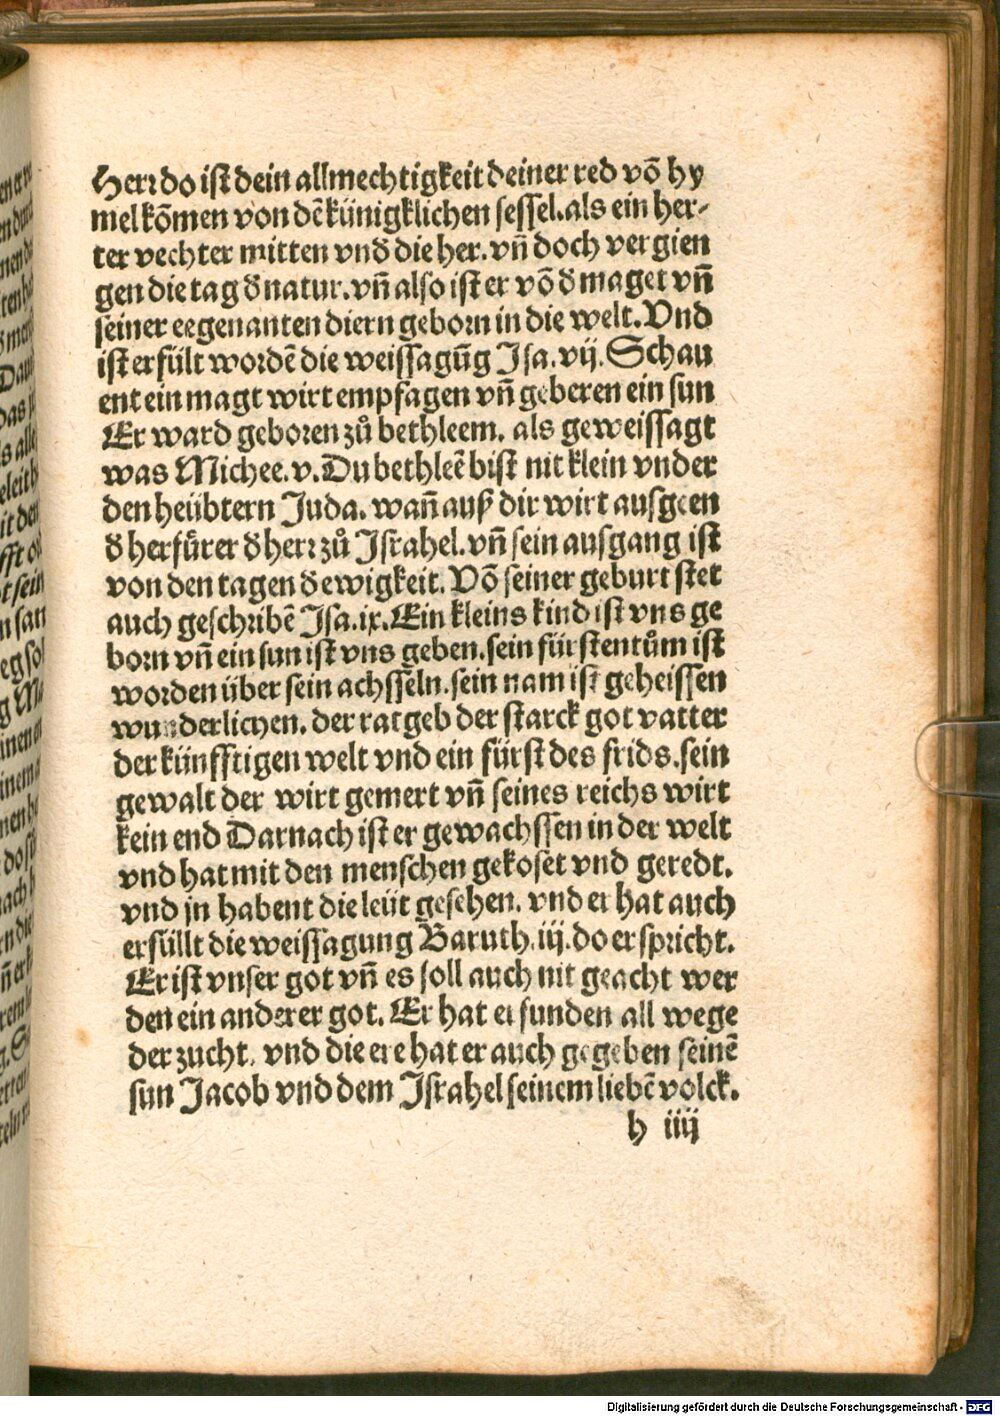 Herr do ist dein allmechtigkeit deiner red võ hy
mel kõmen von dẽ künigklichen sessel. als ein her-
ter vechter mitten vnd̕ die her. vñ doch vergien
gen die tag d̕ natur. vñ also ist er võ d̕ maget vñ
seiner eegenanten diern geborn in die welt. Vnd
ist erfült wordẽ die weissagũg Isa. vij. Schau
ent ein magt wirt empfagen vñ geberen ein sun
Er ward geboren zů bethleem. als geweissagt
was Michee. v. Du bethleẽ bist nit klein vnder
den heübtern Juda. wañ auß dir wirt ausgeen
d̕ herfürer d̕ herr zů Israhel. vñ sein ausgang ist
von den tagen d̕ ewigkeit. Võ seiner geburt stet
auch geschribẽ Isa. ix. Ein kleins kind ist vns ge
born vñ ein sun ist vns geben. sein fürstentům ist
worden über sein achsseln. sein nam ist geheissen
wunderlichen. der ratgeb der starck got vatter
der künfftigen welt vnd ein fürst des frids. sein
gewalt der wirt gemert vñ seines reichs wirt
kein end Darnach ist er gewachssen in der welt
vnd hat mit den menschen gekoset vnd geredt.
vnd jn habent die leüt gesehen. vnd er hat auch
erfüllt die weissagung Baruth. iij. do er spricht.
Er ist vnser got vñ es soll auch nit geacht wer
den ein anderer got. Er hat erfunden all wege
der zucht. vnd die ere hat er auch gegeben seinẽ
sun Jacob vnd dem Israhel seinem liebẽ volck.
h iiij
Digitalisierung gefördert durch die Deutsche Forschungsgemeinschaft - DFG